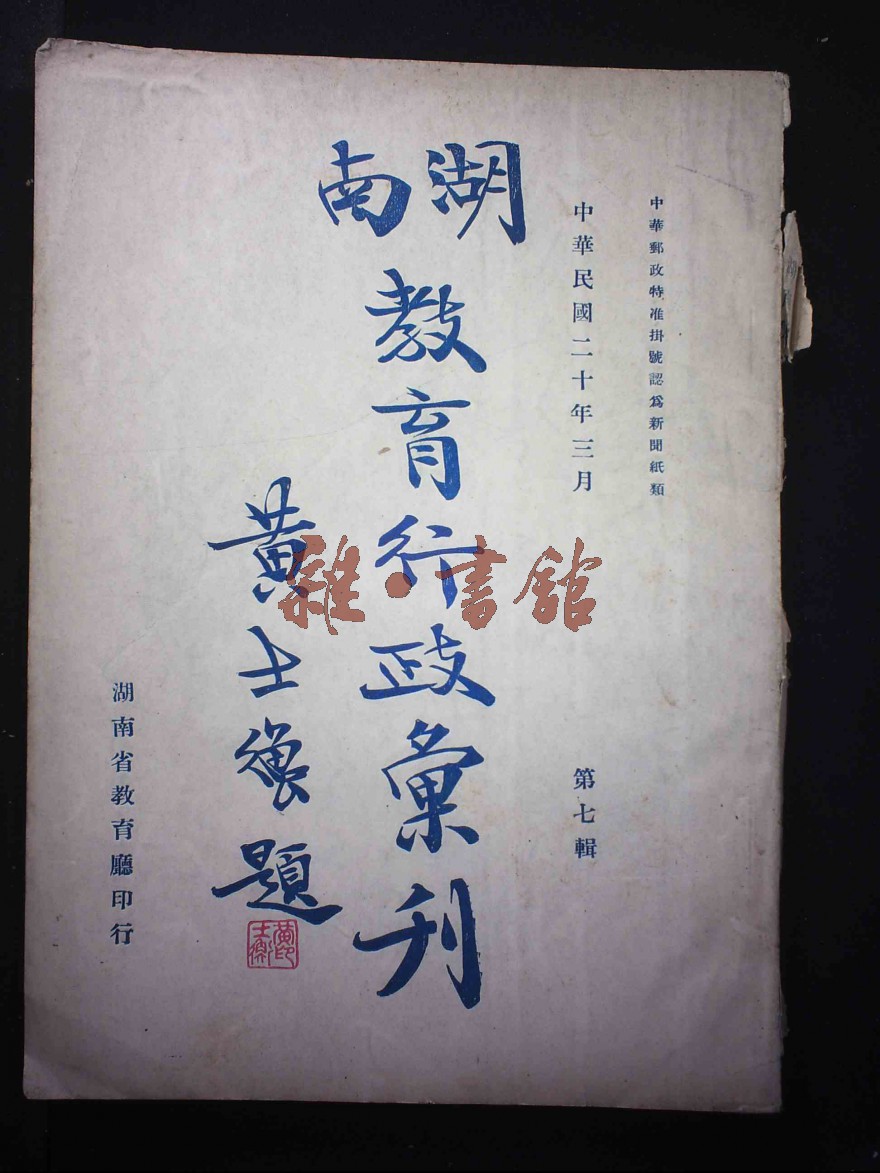 中華郵政特准掛號認爲新聞紙類
中華民國二十年三月
第七輯
湖南
教育行政彙刊
黃士衡題
黃印士衡
湖南省教育廳印行
雜·書館